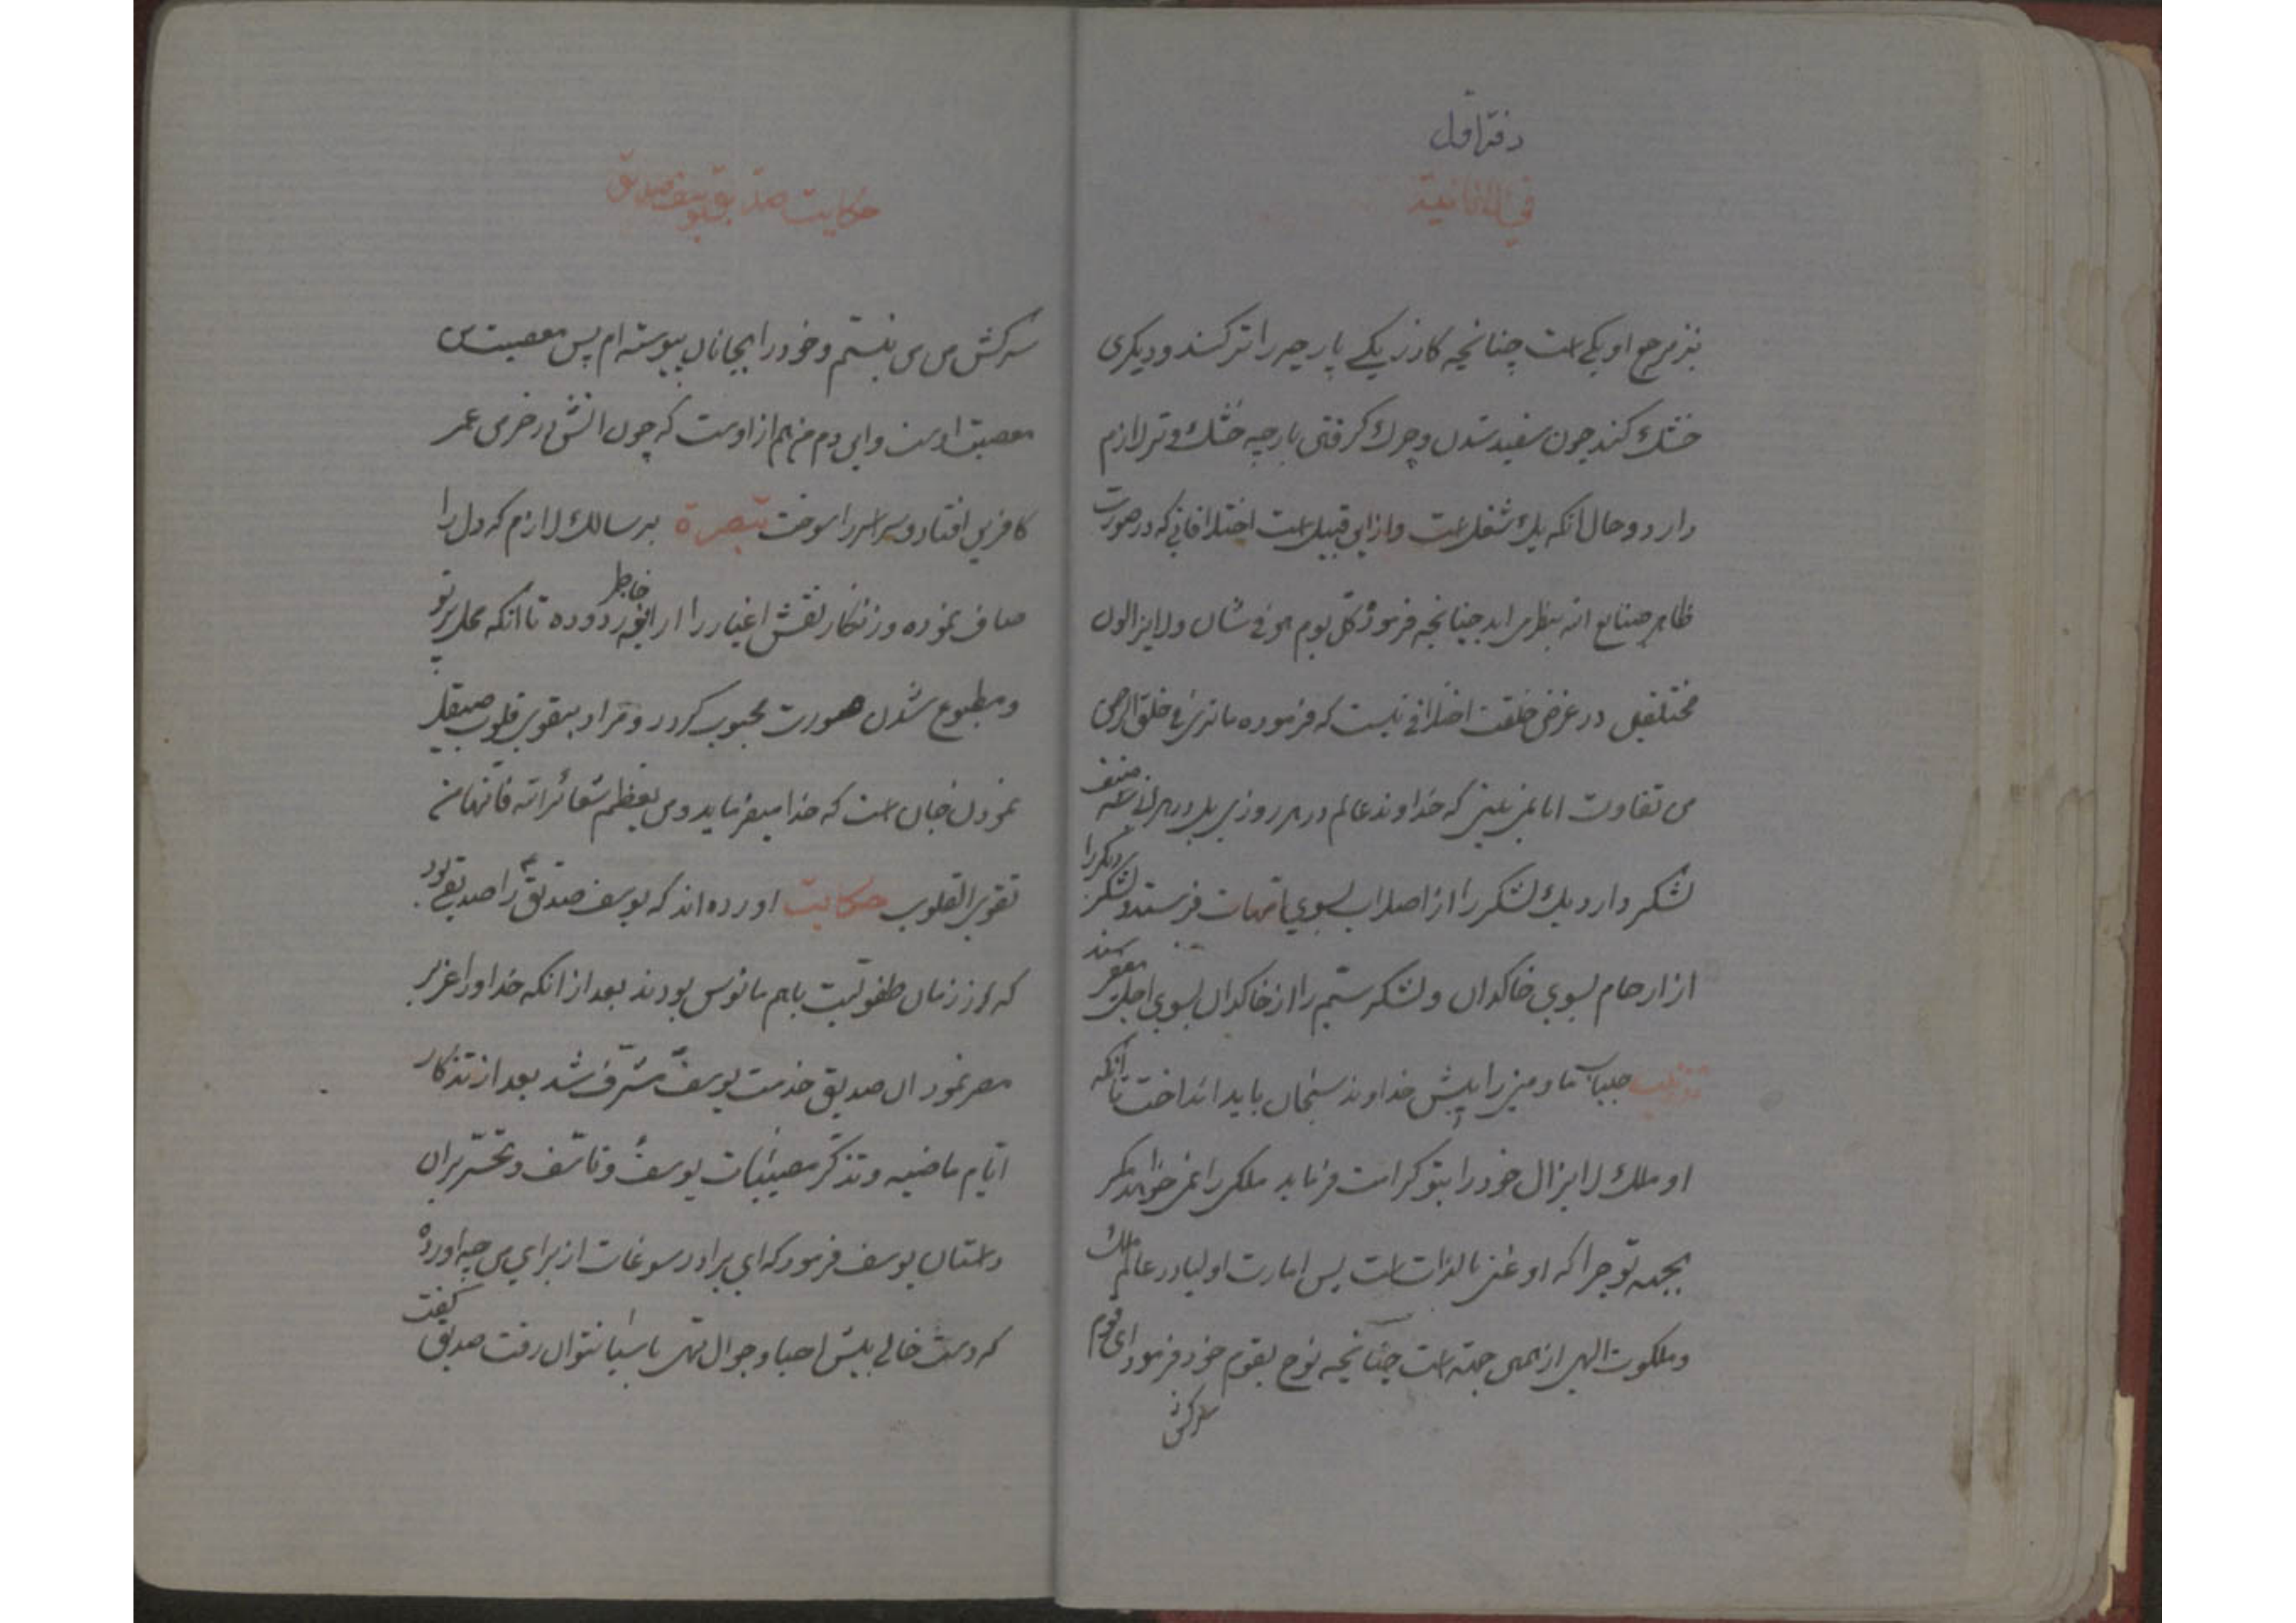 دفتر اول
فی الانانیة
نیز مرجع او یکی است چنانچه کازر یکی پارچه را تر کند و دیکری
خشک کند چون سفید شدن و چرک کرفتن پارچه خشک و تر لازم
دارد و حال انکه یک شغل است و از این قبیل است اختلافاتی که در صورت
ظاهر صنایع الله بنظر می اید چنانچه فرمود کل یوم هو فی شان ولا یزالون
مختلفین در غرض خلقت اختلافی نیست که فرموده ما تری فی خلق الرحمن
من تفاوت اما نمی بینی که خداوند عالم در هر روزی بل در هر انی سه صنف
لشکر دارد یک لشکر را از اصلاب بسوی امهات فرستد و لشکر دیکر را
از ارحام بسوی خاکدان و لشکر ستم را از خاکدان بسوی اجل
ما و منی را پیش خداوند سبحان باید انداخت تا انکه
او ملک لا یزال خود را بتو کرامت فرماید ملکی را نمی خواهد مکر
بجهه تو چرا که او غنی بالذات است پس امارت اولیا در عالم ملک
و ملکوت الهی از همین جهته است چنانچه نوح بقوم خود فرمود ای قوم
سرکش
حکایت صدیق یوسف صدیق
سرکش من من نیستم و خود را بجانان پیوسته ام پس معصیت من
معصیت اوست و این دم من هم از اوست که چون اتش در خرمن عمر
کافرین افتاد و سراسر را سوخت تبصرة بر سالک لازم که دل را
صاف نموده و زنکار نقش اغیار را از خاطر زدوده تا انکه محل پرتو
و مطبوع شدن صورت محبوب کردد و مراد بتقوی قلوب صیقل
نمودن جان است که خدا میفرماید و من یعظم شعائر الله فانها من
تقوی القلوب حکایت اورده اند که یوسف صدیق را صدیقی بود
که از زمان طفولیت با هم مانوس بودند بعد از انکه خدا او را عزیز
مصر نمود ان صدیق خدمت یوسف مشرف شد بعد از تذکار
ایام ماضیه و تذکر مصیبات یوسف و تاسف و تحسر بران
داستان یوسف فرمود که ای برادر سوغات از برای من چه اورده
که دست خالی پیش احبا و جوال تهی باسیا نتوان رفت صدیق کفت